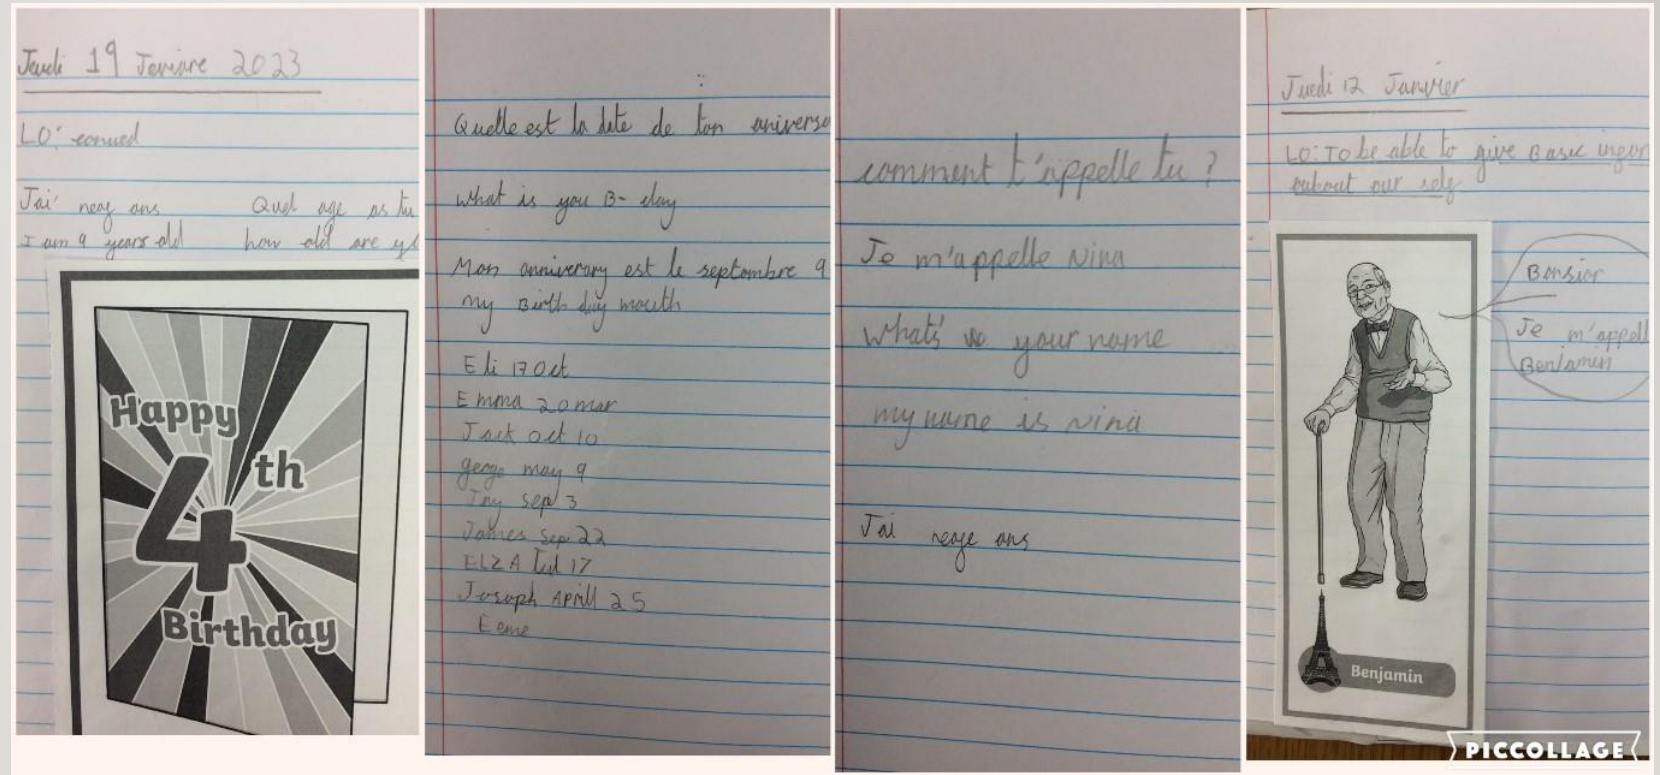 Jeudi 19 Janviare 2023
LO:
Jai' neaf ans Quel age as tu
I am 9 years old how old are
Happy
4th
Birthday
Quelle est la date de ton aniverse
What is you B-day
Mon anniverary est le septembre 9
my Birth day mouth
Eli 17 Oct
Emma 20 mar
Jack oct 10
geoge may 9
sep 3
James Sep 22
ELZA 17
Joseph APRill 25
Eeme
comment t'appelle tu ?
Je m'appelle Nina
What's your name
my name is Nina
Jai neafe ans
Juedi 12 Janvier
LO: To be able to give Basic infor
about our self
Bonsior
Je m'appell
Benjamin
Benjamin
PICCOLLAGE